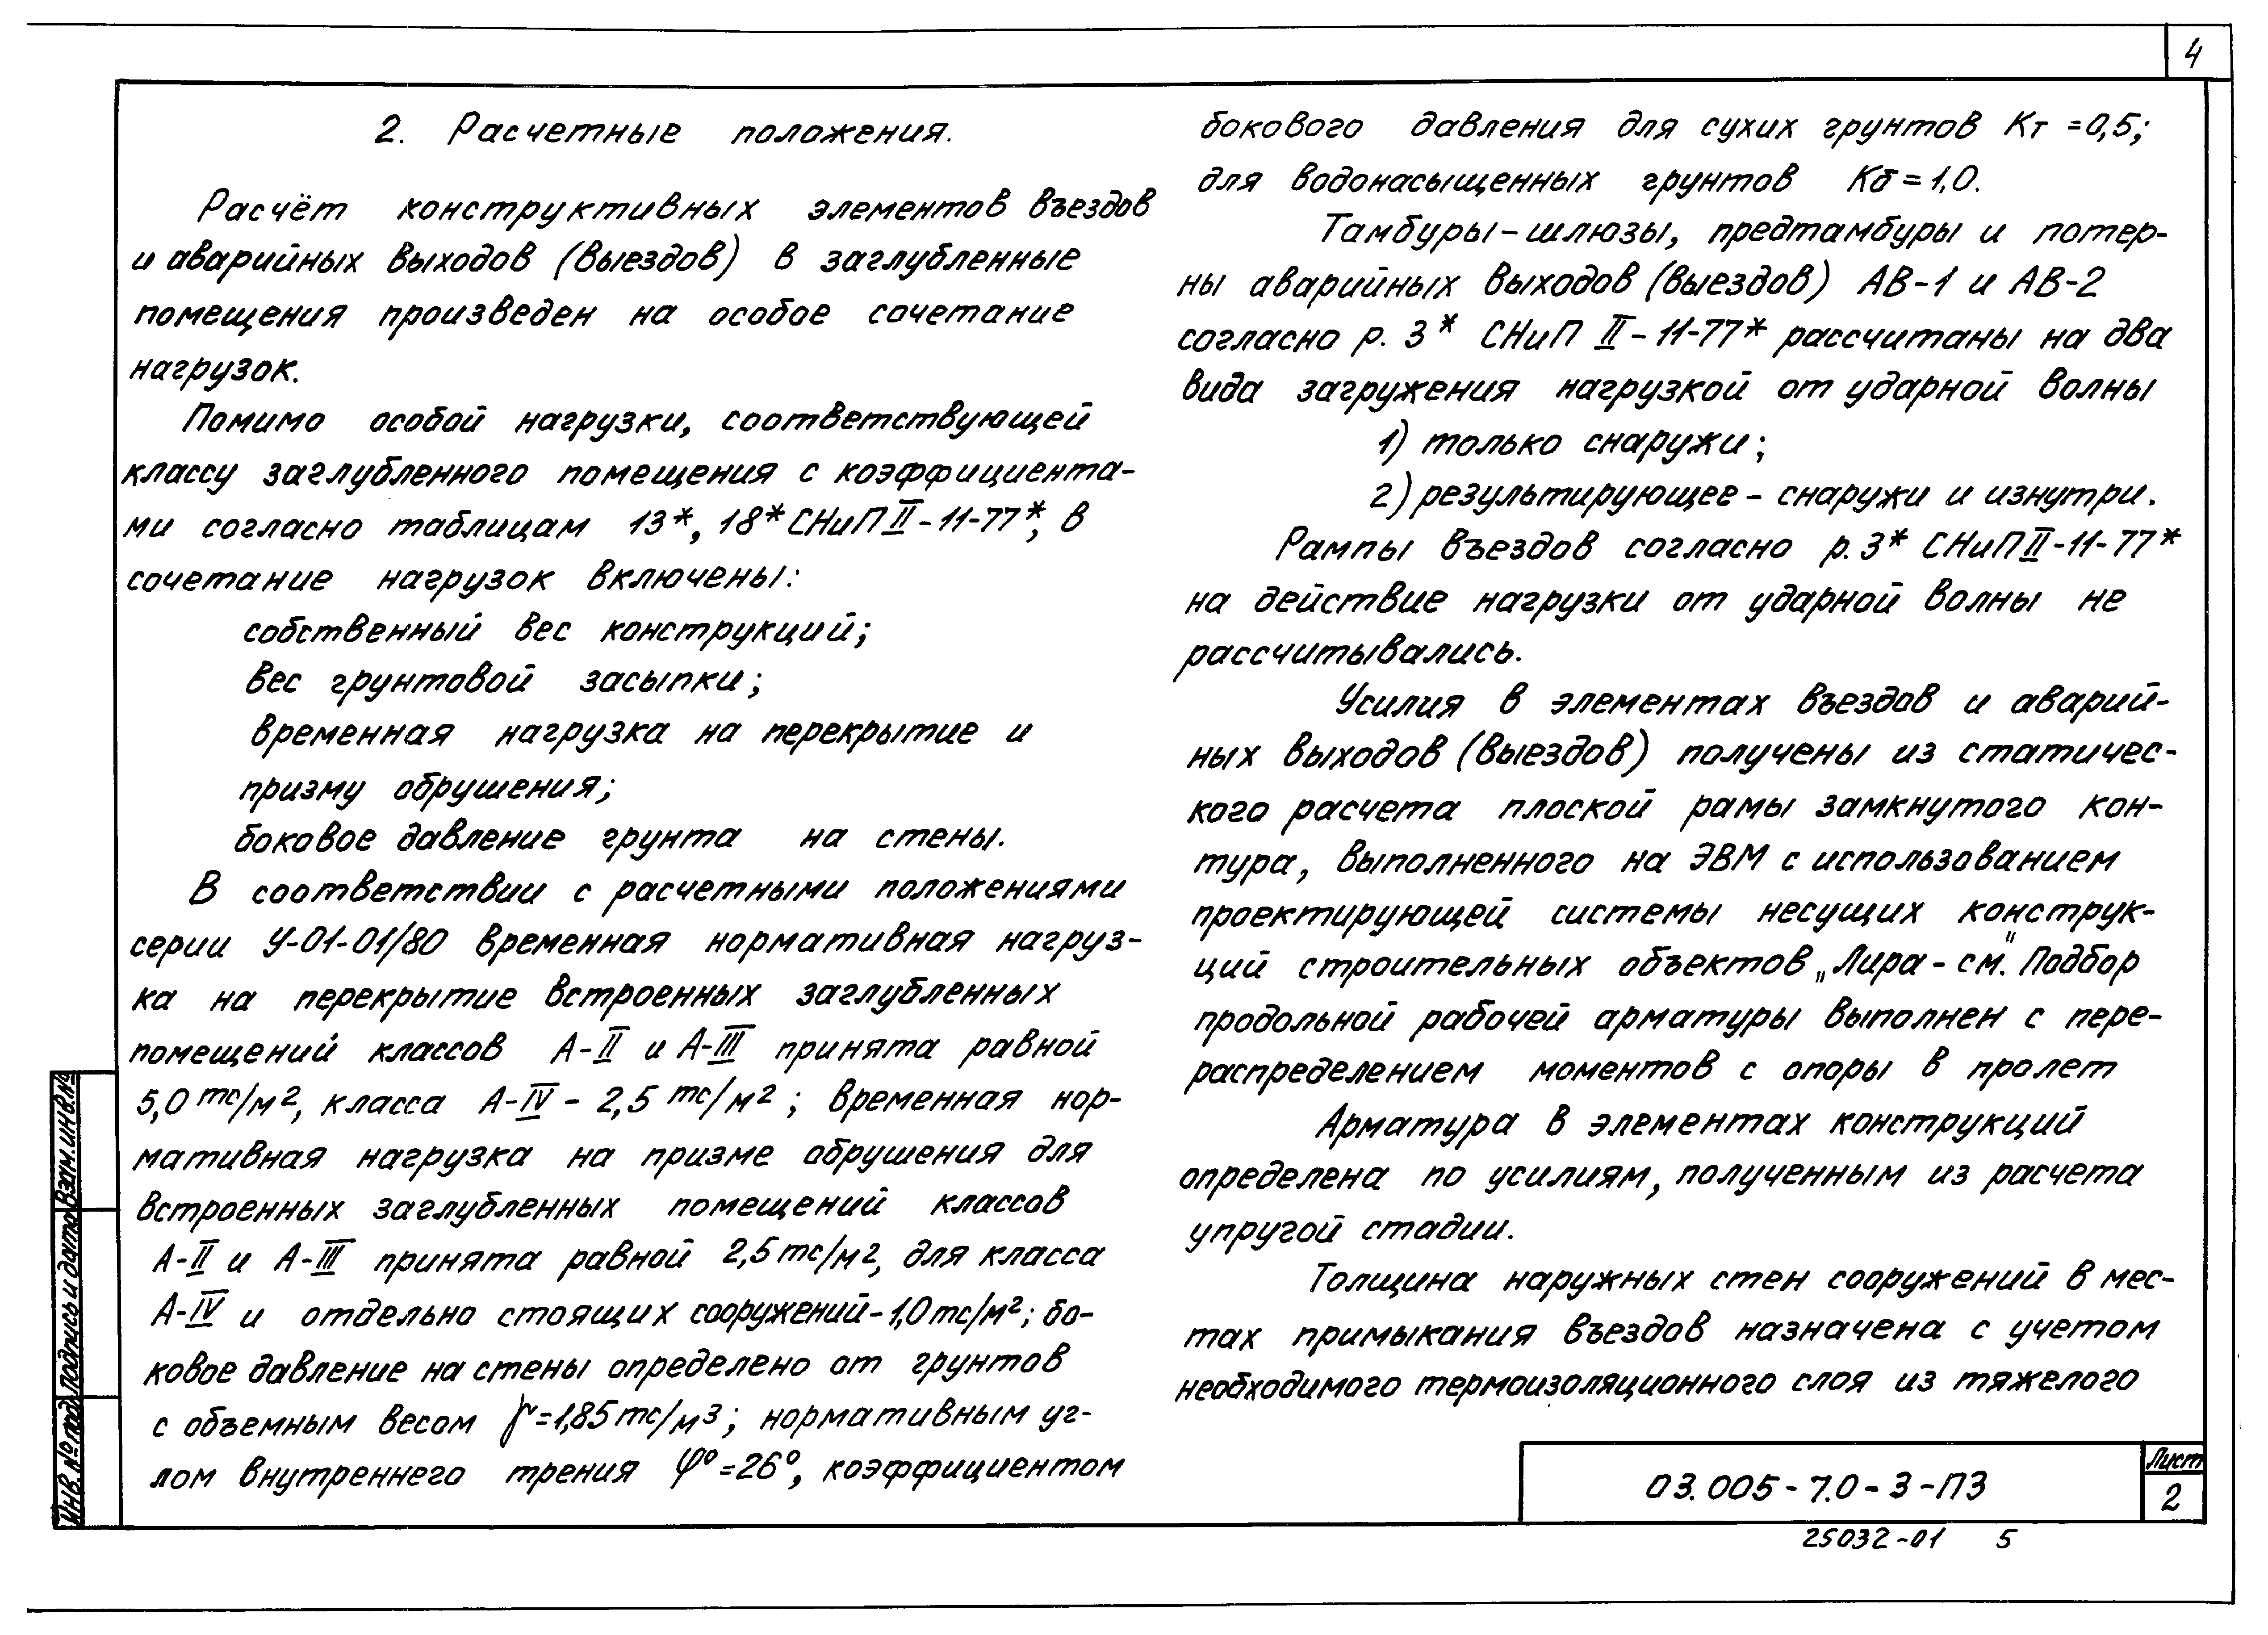 4
2. Расчетные положения.
Расчёт конструктивных элементов въездов
и аварийных выходов (выездов) в заглубленные
помещения произведен на особое сочетание
нагрузок.
Помимо особой нагрузки, соответствующей
классу заглубленного помещения с коэффициента-
ми согласно таблицам 13*, 18* СНиП II-11-77*, в
сочетание нагрузок включены:
собственный вес конструкций;
вес грунтовой засыпки;
временная нагрузка на перекрытие и
призму обрушения;
боковое давление грунта на стены.
В соответствии с расчетными положениями
серии У-01-01/80 временная нормативная нагруз-
ка на перекрытие встроенных заглубленных
помещений классов А-II и А-III принята равной
5,0 тс/м², класса А-IV - 2,5 тс/м²; временная нор-
мативная нагрузка на призме обрушения для
встроенных заглубленных помещений классов
А-II и А-III принята равной 2,5 тс/м², для класса
А-IV и отдельно стоящих сооружений-1,0 тс/м²; бо-
ковое давление на стены определено от грунтов
с объемным весом γ=1,85 тс/м³; нормативным уг-
лом внутреннего трения φ°=26°, коэффициентом
бокового давления для сухих грунтов Кт =0,5;
для водонасыщенных грунтов Кб=1,0.
Тамбуры-шлюзы, предтамбуры и потер-
ны аварийных выходов (выездов) АВ-1 и АВ-2
согласно р. 3* СНиП II-11-77* рассчитаны на два
вида загружения нагрузкой от ударной волны
1) только снаружи;
2) результирующее - снаружи и изнутри.
Рампы въездов согласно р.3* СНиП II-11-77*
на действие нагрузки от ударной волны не
рассчитывались.
Усилия в элементах въездов и аварий-
ных выходов (выездов) получены из статичес-
кого расчета плоской рамы замкнутого кон-
тура, выполненного на ЭВМ с использованием
проектирующей системы несущих конструк-
ций строительных объектов „Лира-см." Подбор
продольной рабочей арматуры выполнен с пере-
распределением моментов с опоры в пролет
Арматура в элементах конструкций
определена по усилиям, полученным из расчета
упругой стадии.
Толщина наружных стен сооружений в мес-
тах примыкания въездов назначена с учетом
необходимого термоизоляционного слоя из тяжелого
Взам.инв.№
Подпись и дата
Инв.№ подл
03.005-7.0-3-ПЗ
Лист
2
25032-01 5